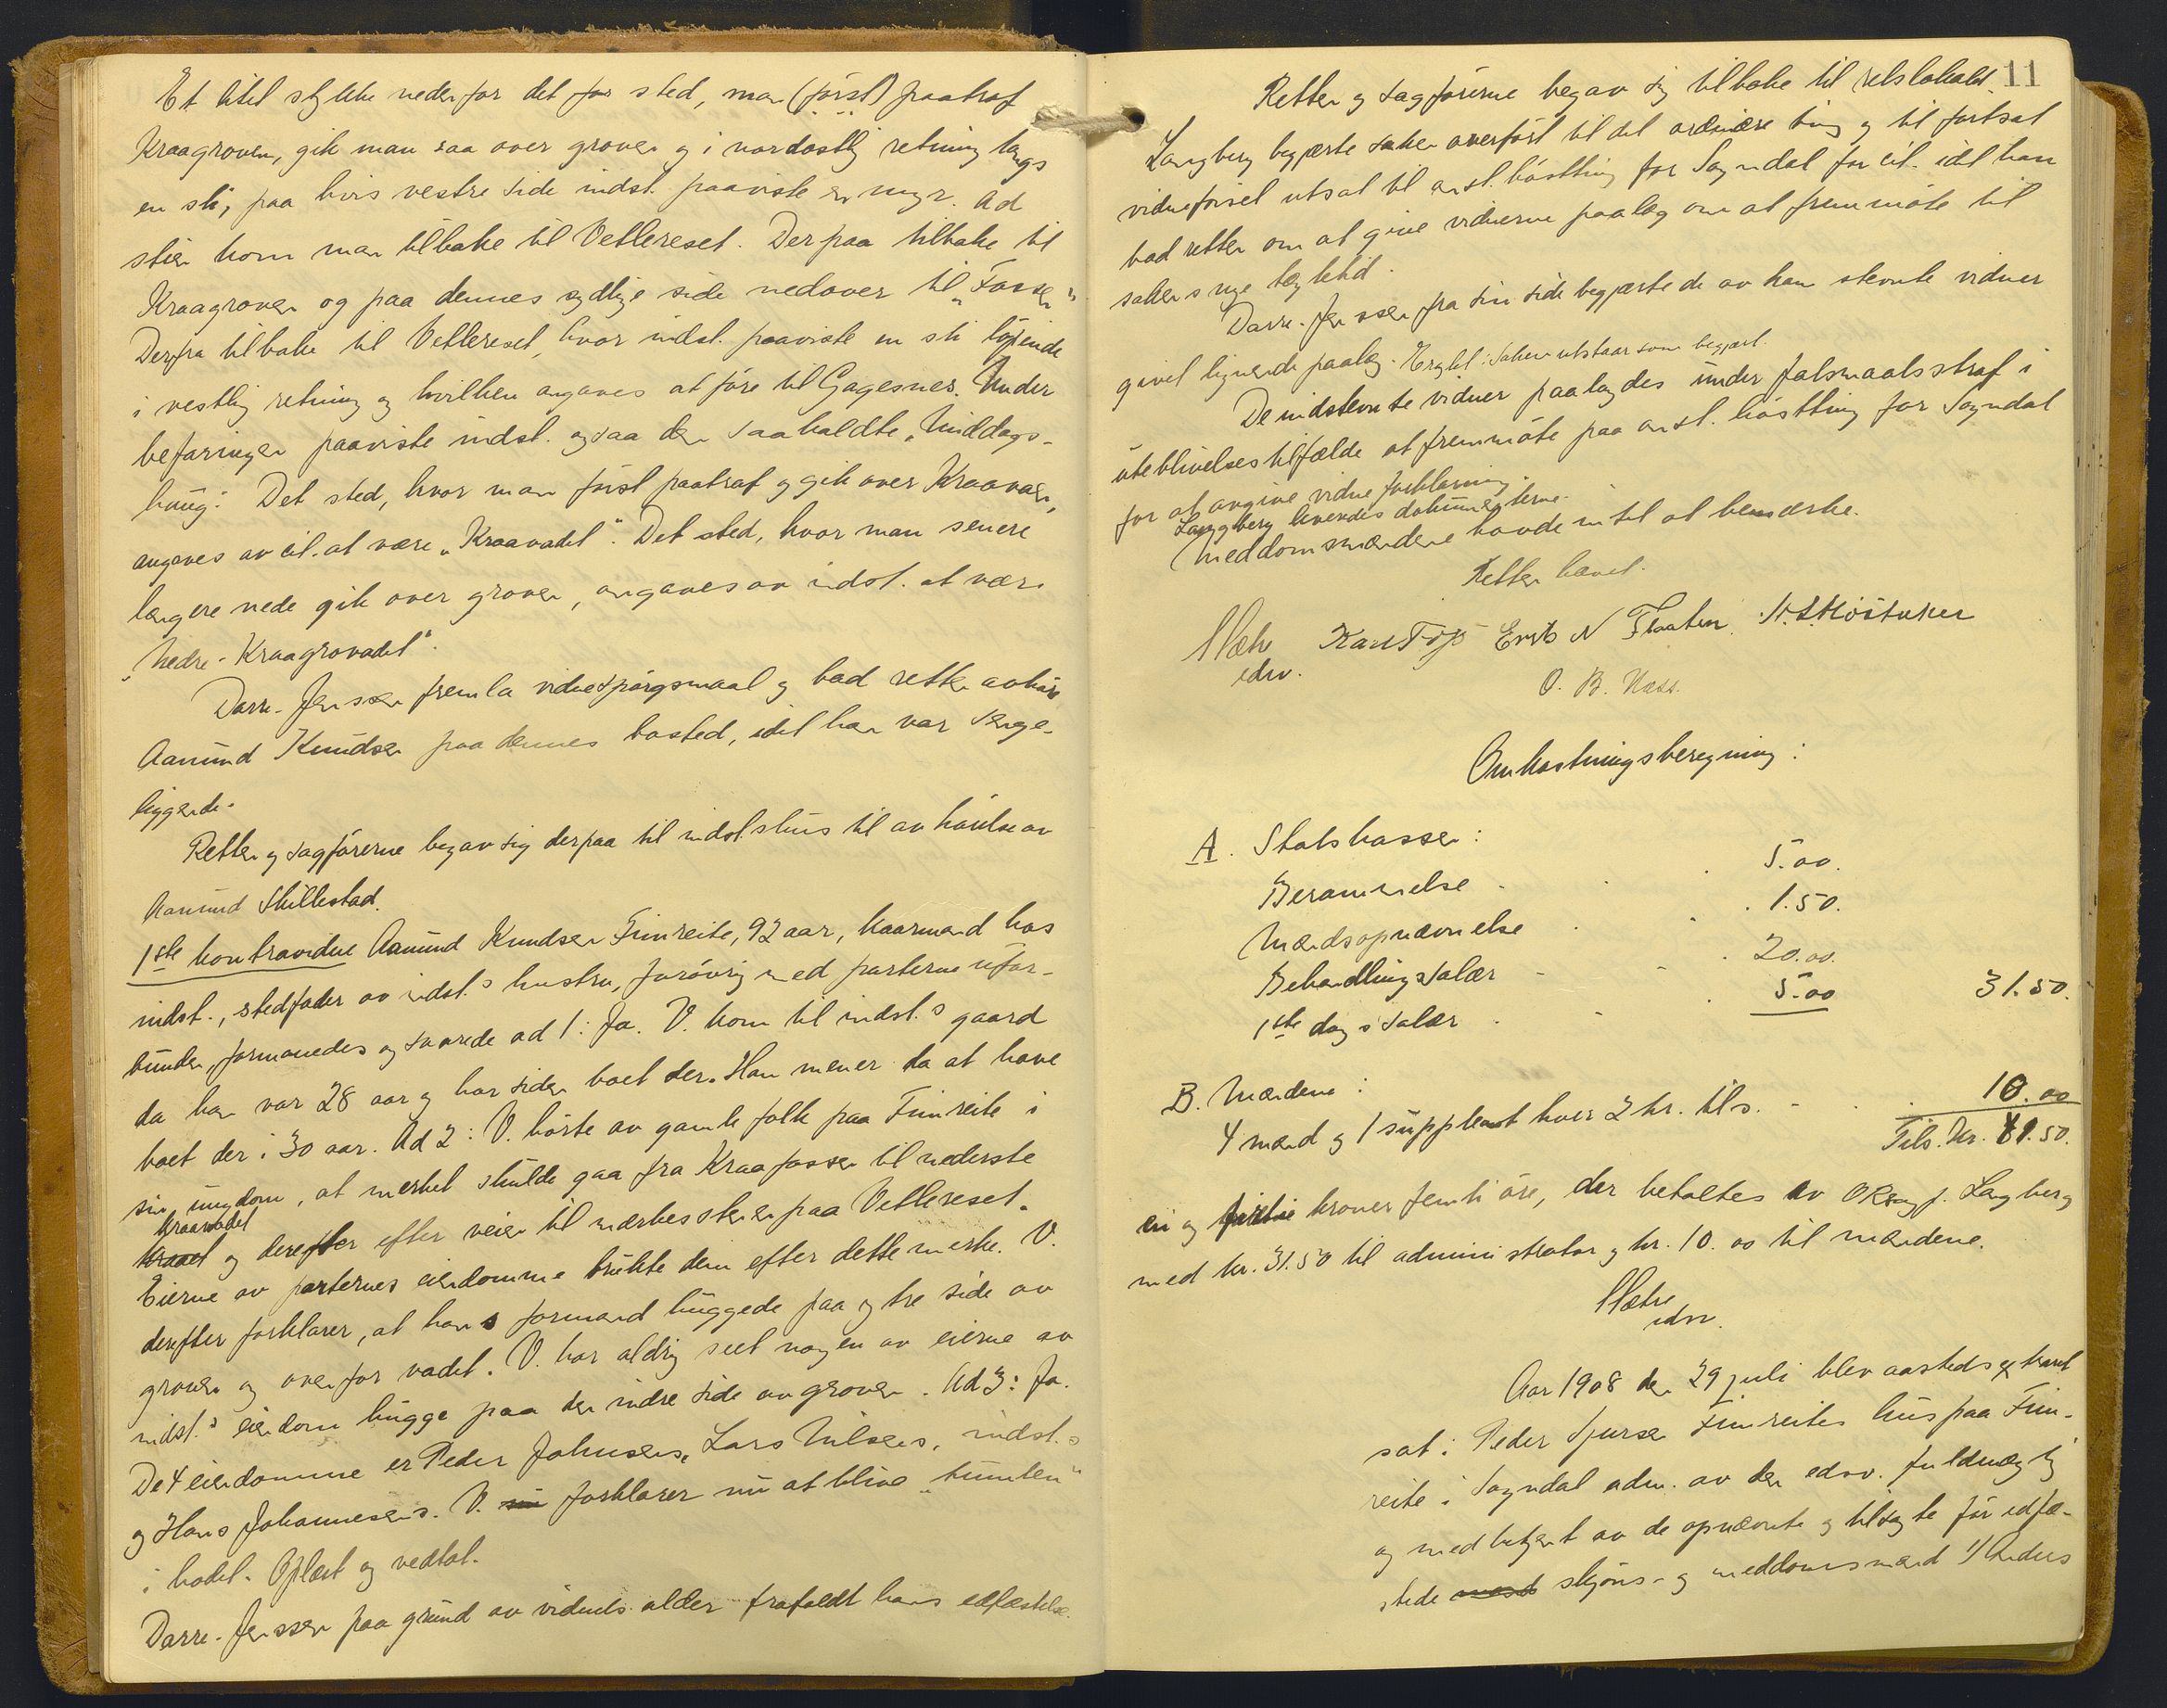 Et litet stykke nedenfor det før sted, man (først) paatraf
Kraagroven, gik man saa over groven og i nordøstlig retning langs
en sti, paa hvis vestre side indst. paaviste en myr. Ad
stien kom man tilbake til Vetlereset. Derpaa tilbake til
Kraagroven og paa dennes sydlige side nedover til "Fossen".
Derfra tilbake til Vetlereset, hvor indst. paaviste en sti løpende
i vestlig retning og hvilken angaves at føre til Gagesnes. Under
befaringen paaviste indst. ogsaa den saakaldte "Middags-
haug". Det sted, hvor man først paatraf og gik over Kraaroven,
angaves av cit. at være "Kraavadet". Det sted, hvor man senere
længere nede gik over groven, angaves av indst. at være
"Nedre-Kraagrovadet".
Darre-Jenssen fremla vidnespørgsmaal og bad retten avhøre
Aamund Knudsen paa dennes bosted, idet han var senge-
liggende.
Retten og sagførerne begav sig derpaa til indst.s hus til avhørelse av
Aamund Skillestad.
1ste kontravidne Aamund Knudsen Fimreite, 92 aar, kaarmand hos
indst., stedfader av indst.s hustru, forøvrig med parterne ufor-
bunden, formanedes og svarede ad 1: Ja. V. kom til indst.s gaard
da han var 28 aar og har siden boet der. Han mener da at have
boet der i 30 aar. Ad 2: V. hørte av gamle folk paa Fimreite i
sin ungdom, at merket skulde gaa fra Kraafossen til nederste
Kraavadet
og derefter efter veien til merkesstenen paa Vetlereset.
Eierne av parternes eiendomme brukte dem efter dette merke. V.
derefter forklarer, at hans formand huggede paa ytre side av
groven og ovenfor vadet. V. har aldrig seet nogen av eierne av
indst.s eiendom hugge paa den indre side av groven. Ad 3: Ja.
De 4 eiendomme er Peder Johnsens, Lars Nilsens, indst.s
og Hans Johannesens. V. forklarer nu at blive "tumlen"
i hodet. Oplæst og vedtat.
Darre-Jenssen paa grund av vidnets alder frafaldt hans edfæstelse.
11
Retten og sagførerne begav sig tilbake til retslokalet.
Langberg begjærte saken overført til det ordinære ting og til fortsat
vidneførsel utsat til anst. høstting for Sogndal for cit. idet han
bad retten om at give vidnerne paalæg om at fremmøte til
sakens nye tægtetid.
Darre-Jenssen fra sin side begjærte de av ham stevnte vidner
givet lignende paalæg. Eragtet: Saken utstaar som begjært.
De indstevnte vidner paalagdes under falsmaalsstraf i
uteblivelsestilfælde at fremmøte paa anst. høstting for Sogndal
for at avgive vidneforklaring.
Langberg leveredes dokumenterne.
Meddomsmændene havde intet at bemærke.
Retten hævet.
Karl Erik N Flaaten
edsv. O. B. Næss.
Omkostningsberegning:
A. Statskassen:
Berammelse . . . 5.00.
Mændsopnævnelse . . . 1.50.
Behandlingssalær - - . 20.00.
1ste dags salær . - . 5.00 31.50.
B. Mændene:
4 mænd og 1 suppleant hver 2 kr. tils. - . . 10.00
Tils. kr. 41.50.
en og kroner femti øre, der betaltes av ORsagf. Langberg
med kr. 31.50 til administrator og kr. 10.00 til mændene.
edsv.
Aar 1908 den 29 juli blev aastedsextraret
sat i Peder Sjursen Fimreites hus paa Fim-
reite i Sogndal adm. av den edsv. fuldmægtig
og med betjent av de opnævnte og tilsagte før edfæ-
stede skjøns- og meddomsmænd 1/ Anders